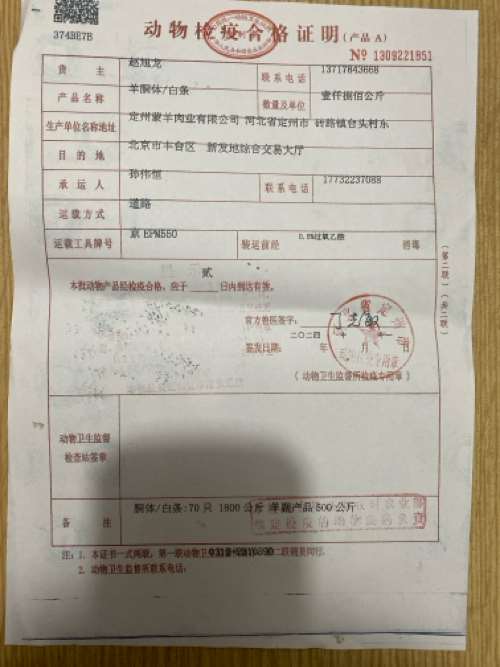 374BE7B
动物检疫合格证明(产品 A)
№ 1309221851
货主 赵旭龙 联系电话 13717843668
产品名称 羊胴体/白条 数量及单位 壹仟捌佰公斤
生产单位名称地址 定州蒙羊肉业有限公司 河北省定州市 砖路镇台头村东
目的地 北京市丰台区 新发地综合交易大厅
承运人 孙伟恒 联系电话 17732237088
运载方式 道路
运载工具牌号 京 装运前经 过氧乙酸 消毒
本批动物产品经检疫合格,应于 贰 日内到达有效。
官方兽医签字:
签发日期: 二〇二四 年 月 日
(动物卫生监督所检疫专用章)
动物卫生监督检查站签章
备注 胴体/白条:70 只 1800 公斤 羊副产品 500 公斤
注:1. 本证书一式两联,第一联动物卫生监督 二联随货同行。
2. 动物卫生监督所联系电话:
(第二联)